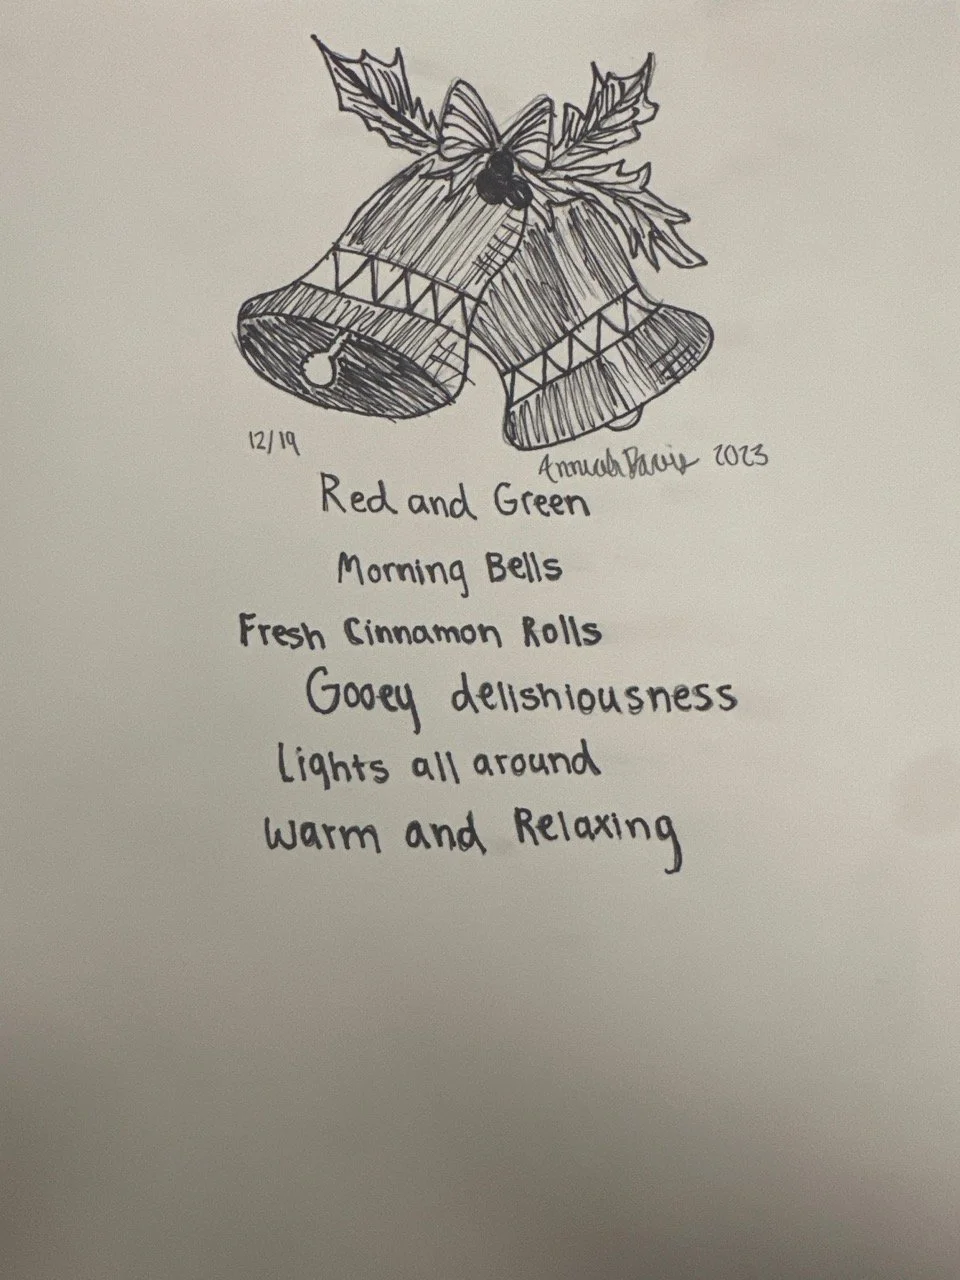 12/19
Anniah Davis 2023
Red and Green
Morning Bells
Fresh Cinnamon Rolls
Gooey delishiousness
Lights all around
Warm and Relaxing